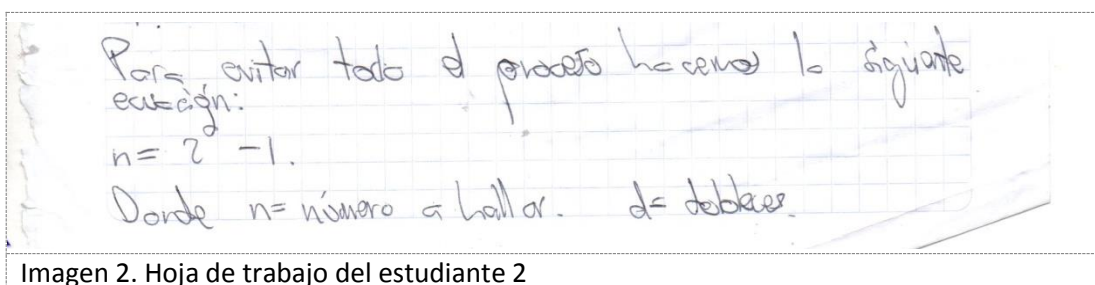 Para evitar todo el proceso hacemos la siguiente
ecuación:
n = 2^d - 1.
Donde n = número a hallar. d = dobleces.
Imagen 2. Hoja de trabajo del estudiante 2